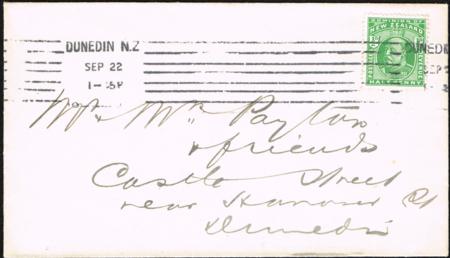 DUNEDIN N.Z
SEP 22
1-15P
DOMINION OF
NEW ZEALAND
HALF PENNY
DUNEDIN
SEP 2
Mr & Mrs Payton
& friends
Castle Street
near Hanover St
Dunedin